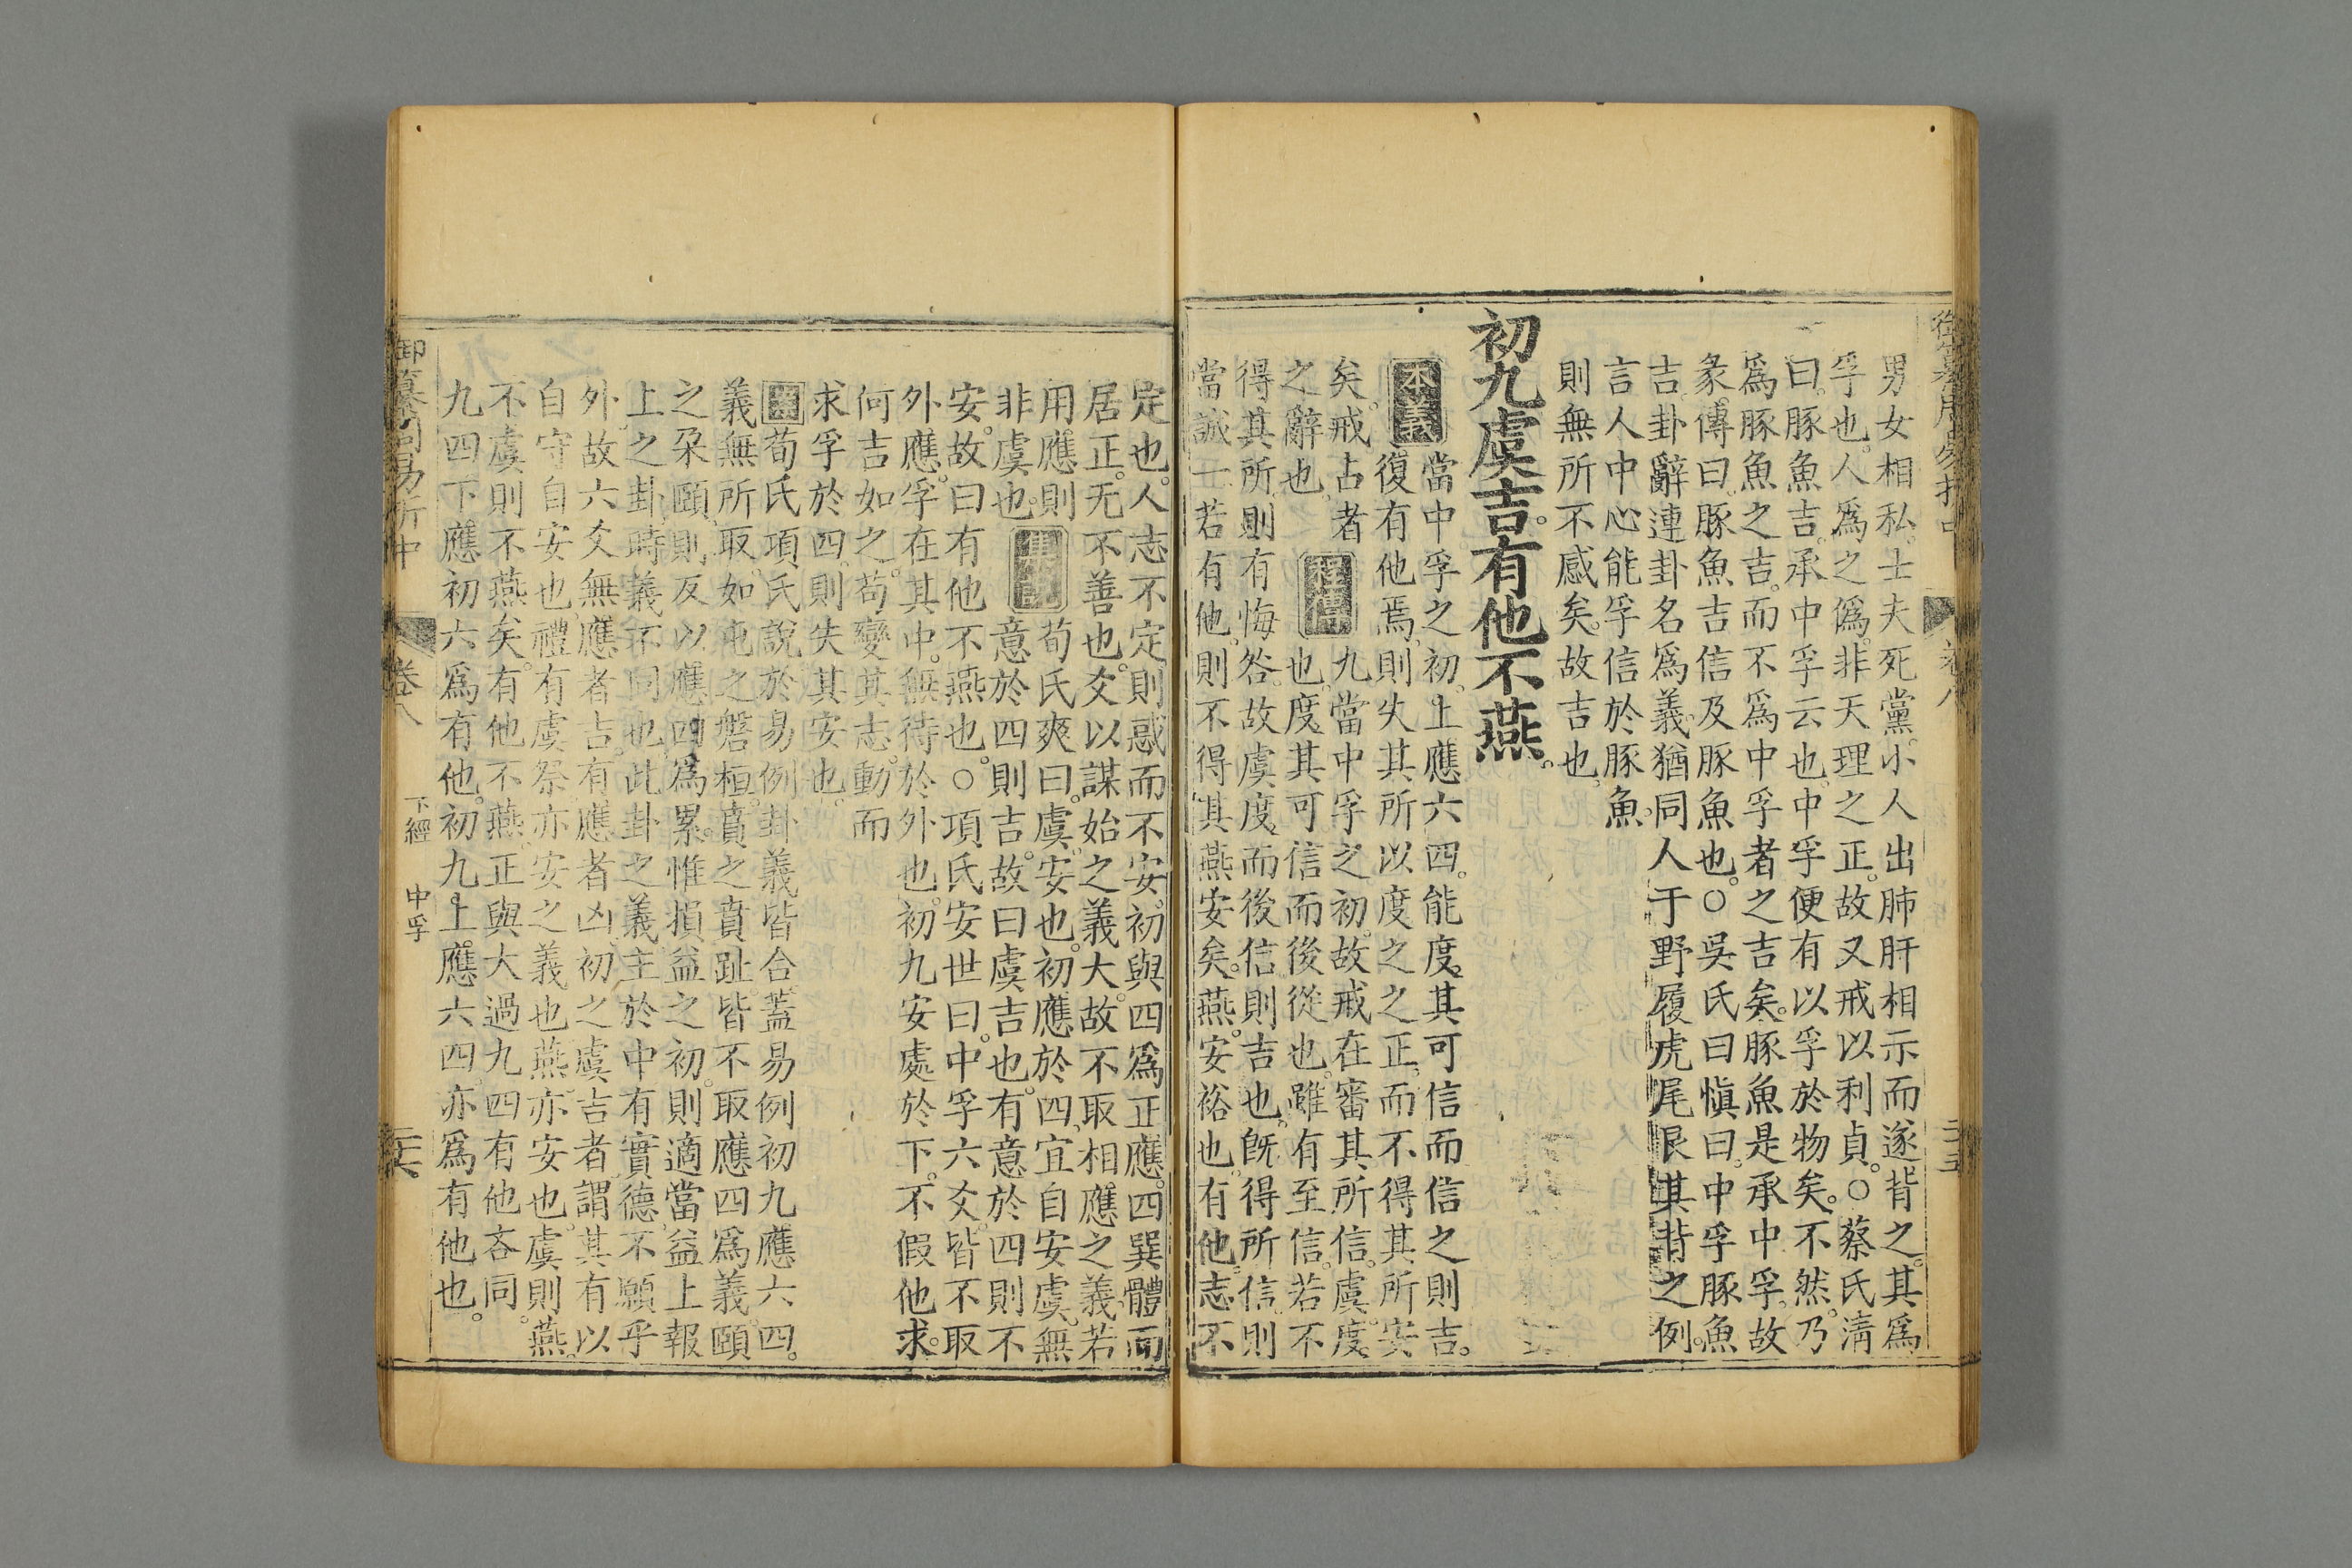 御纂周易折中
卷八
二十五
男女相私。士夫死黨。小人出肺肝相示而遂背之。其爲
孚也。人爲之僞。非天理之正。故又戒以利貞。○蔡氏淸
曰。豚魚吉。承中孚云也。中孚便有以孚於物矣。不然。乃
爲豚魚之吉。而不爲中孚者之吉矣。豚魚是承中孚。故
彖傳曰。豚魚吉信及豚魚也。○吳氏曰愼曰。中孚豚魚
吉。卦辭連卦名爲義。猶同人于野履虎尾艮其背之例。
言人中心能孚信於豚魚。
則無所不感矣。故吉也。
初九虞吉。有他不燕。
本義 當中孚之初。上應六四。能度其可信而信之則吉。
復有他焉。則失其所以度之之正。而不得其所安
矣。戒占者
之辭也。
程傳 九當中孚之初。故戒在審其所信。虞。度
也。度其可信而後從也。雖有至信。若不
得其所。則有悔咎。故虞度而後信則吉也。旣得所信。則
當誠一。若有他。則不得其燕安矣。燕。安裕也。有他。志不
定也。人志不定。則惑而不安。初與四爲正應。四巽體而
居正。无不善也。爻以謀始之義大。故不取相應之義。若
用應則
非虞也。
集說 荀氏爽曰。虞。安也。初應於四。宜自安虞。無
意於四則吉。故曰虞吉也。有意於四則不
安。故曰有他不燕也。○項氏安世曰。中孚六爻。皆不取
外應。孚在其中。無待於外也。初九安處於下。不假他求。
何吉如之。苟變其志。動而
求孚於四。則失其安也。
荀氏項氏說。於易例卦義皆合。蓋易例初九應六四。
義無所取。如屯之磐桓。賁之賁趾。皆不取應四爲義。頤
之朵頤。則反以應四爲累。惟損益之初。則適當益上報
上之卦。時義不同也。此卦之義。主於中有實德。不願乎
外。故六爻無應者吉。有應者凶。初之虞吉者。謂其有以
自守自安也。禮有虞祭。亦安之義也。燕。亦安也。虞則燕。
不虞則不燕矣。有他不燕。正與大過九四有他吝同。
九四下應初六爲有他。初九上應六四。亦爲有他也。
御纂周易折中
卷八
下經
中孚
二十六